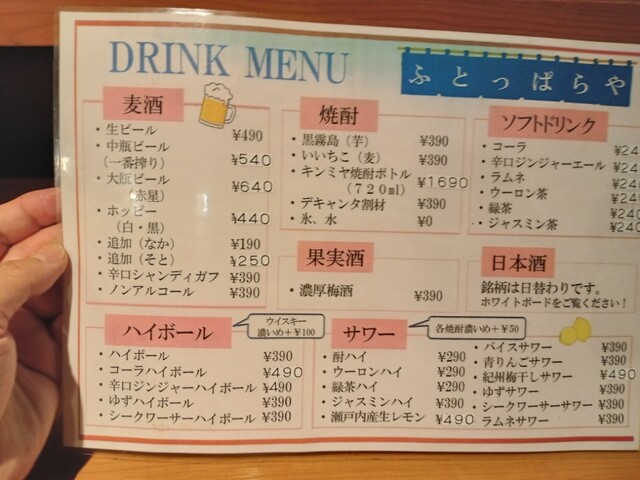 DRINK MENU
ふとっぱらや
麦酒
・生ビール ¥490
・中瓶ビール
(一番搾り) ¥540
・大瓶ビール ¥640
(赤星)
・ホッピー ¥440
(白・黒)
・追加(なか) ¥190
・追加(そと) ¥250
・辛口シャンディガフ ¥390
・ノンアルコール ¥390
焼酎
・黒霧島(芋) ¥390
・いいちこ(麦) ¥390
・キンミヤ焼酎ボトル
(720ml) ¥1690
・デキャンタ割材 ¥390
・氷、水 ¥0
ソフトドリンク
・コーラ ¥24
・辛口ジンジャーエール ¥24
・ラムネ ¥24
・ウーロン茶 ¥240
・緑茶 ¥240
・ジャスミン茶 ¥240
果実酒
・濃厚梅酒 ¥390
日本酒
銘柄は日替わりです。
ホワイトボードをご覧ください!
ハイボール
ウイスキー
濃いめ+¥100
・ハイボール ¥390
・コーラハイボール ¥490
・辛口ジンジャーハイボール ¥490
・ゆずハイボール ¥390
・シークワーサーハイボール ¥390
サワー
各焼酎濃いめ+¥50
・酎ハイ ¥290
・ウーロンハイ ¥290
・緑茶ハイ ¥290
・ジャスミンハイ ¥390
・瀬戸内産生レモン ¥490
・バイスサワー ¥390
・青りんごサワー ¥390
・紀州梅干しサワー ¥490
・ゆずサワー ¥390
・シークワーサーサワー ¥390
・ラムネサワー ¥390